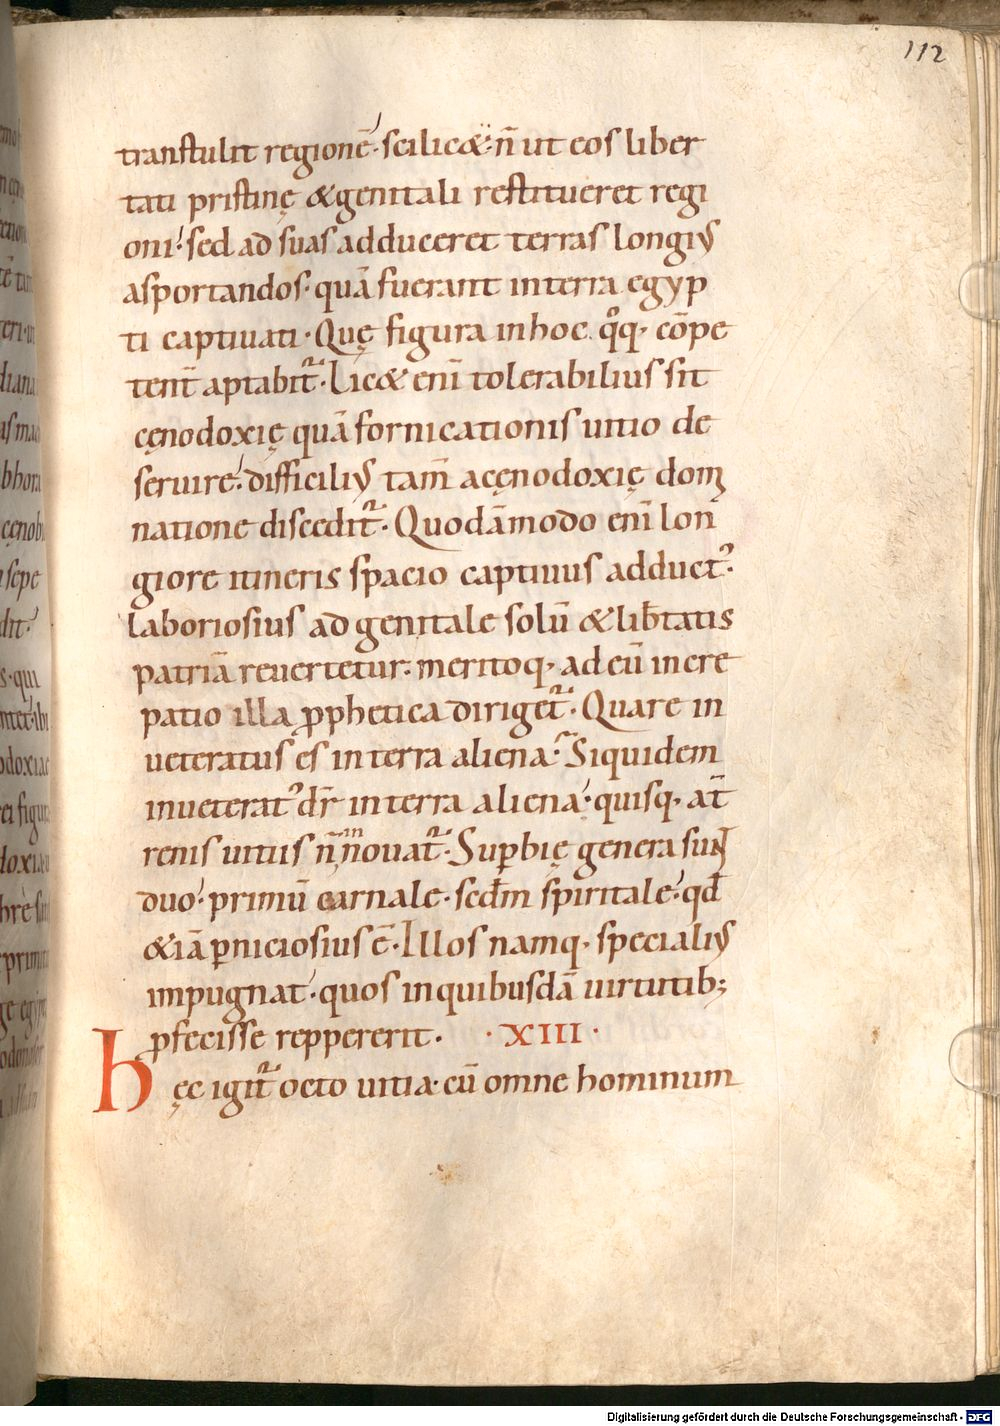 112
transtulit regionē· scilic&· n̄ ut eos liber
tati pristinę &genitali restitueret regi
oni· sed ad suas adduceret terras longiꝰ
asportandos· quā fuerant interra egyp
ti captiuati· Quę figura inhoc qͦq· cōpe
tent̄ aptabit᷑· Lic& enī tolerabilius sit
cęnodoxię quā fornicationis uitio de
seruire· difficiliꝰ tam̄ acęnodoxię dom
natione discedit᷑· Quodāmodo enī lon
giore itineris spacio captiuus adductꝰ·
laboriosius ad genitale solū &lib̄tatis
patriā reuertetur· meritoq· ad eū incre
patio illa ꝓphetica diriget᷑· Quare in
ueteratus es in terra aliena· Siquidem
inueteratꝰ dr̄ in terra aliena· quisq· at̄
renis uitiis n̄ nouat᷑· Suꝑbię genera sunt
duo· primū carnale· secd̄m spiritale· qd̄
&iā ꝑniciosius ē· Illos namq· specialiꝰ
impugnat· quos inquibusdā uirtutib;
ꝓfecisse reppererit. ·XIII·
hęc igit᷑ octo uitia· cū omne hominum
Digitalisierung gefördert durch die Deutsche Forschungsgemeinschaft - DFG